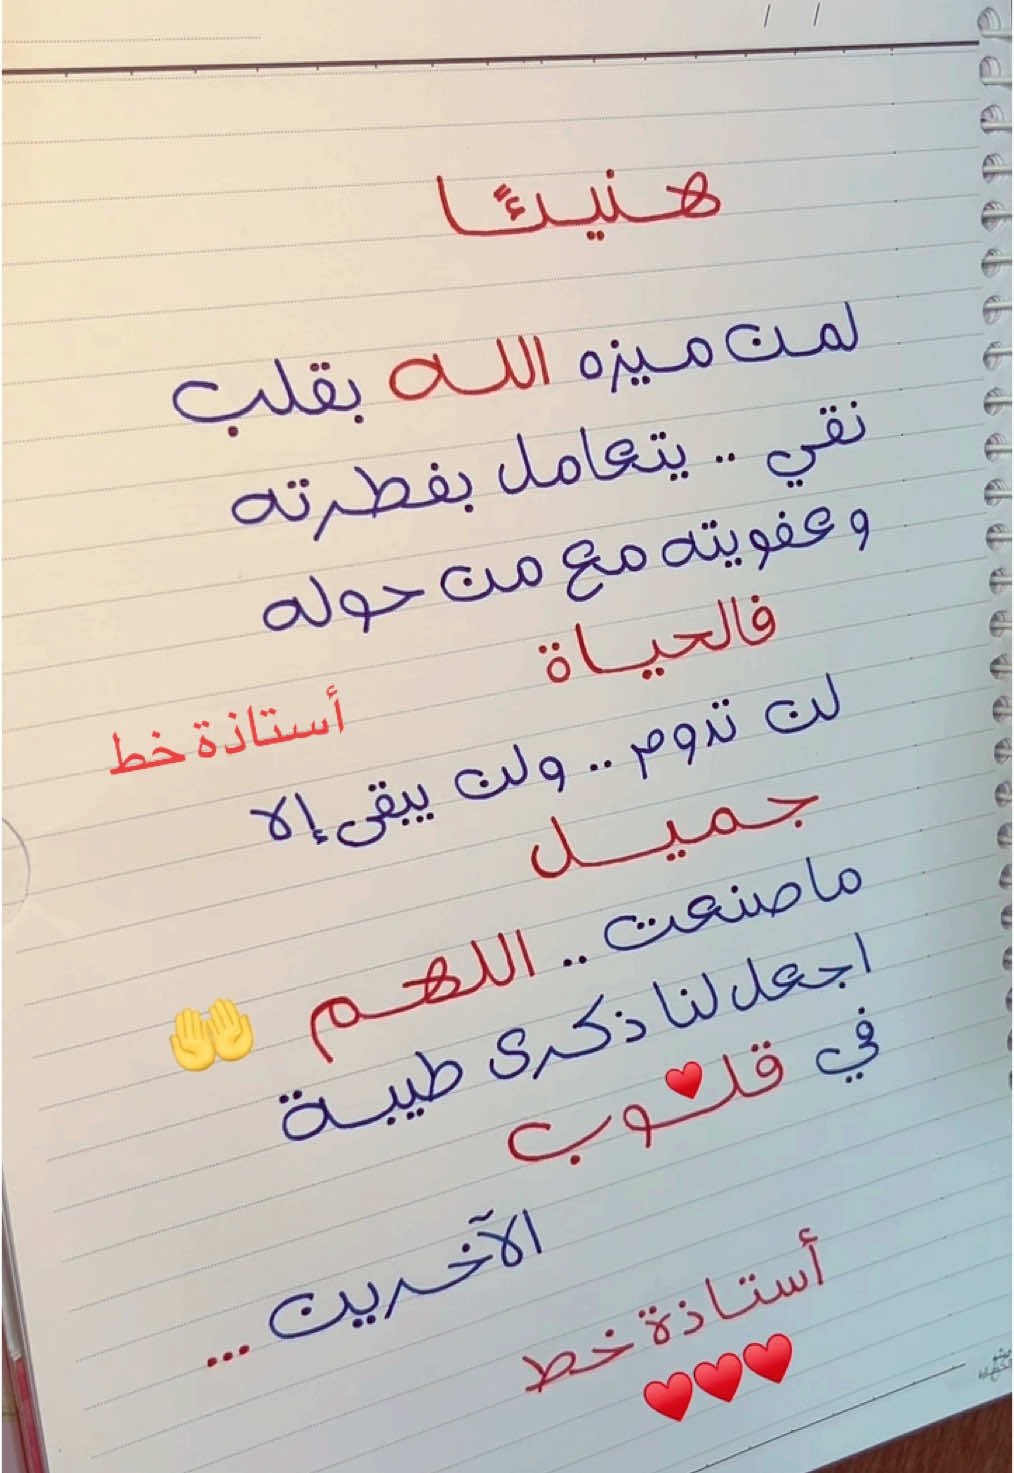 هنيئًا
لمن ميزه الله بقلب
نقي .. يتعامل بفطرته
وعفويته مع من حوله
فالحياة
أستاذة خط
لن تدوم .. ولن يبقى إلا
جميل
ما صنعت .. اللهم
اجعل لنا ذكرى طيبة
في قلوب
الآخرين ...
أستاذة خط